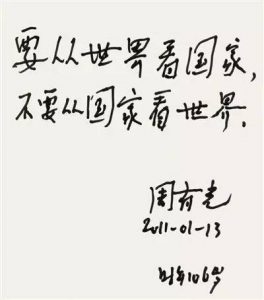 要从世界看国家,
不要从国家看世界.
周有光
2011-01-13
时年106岁